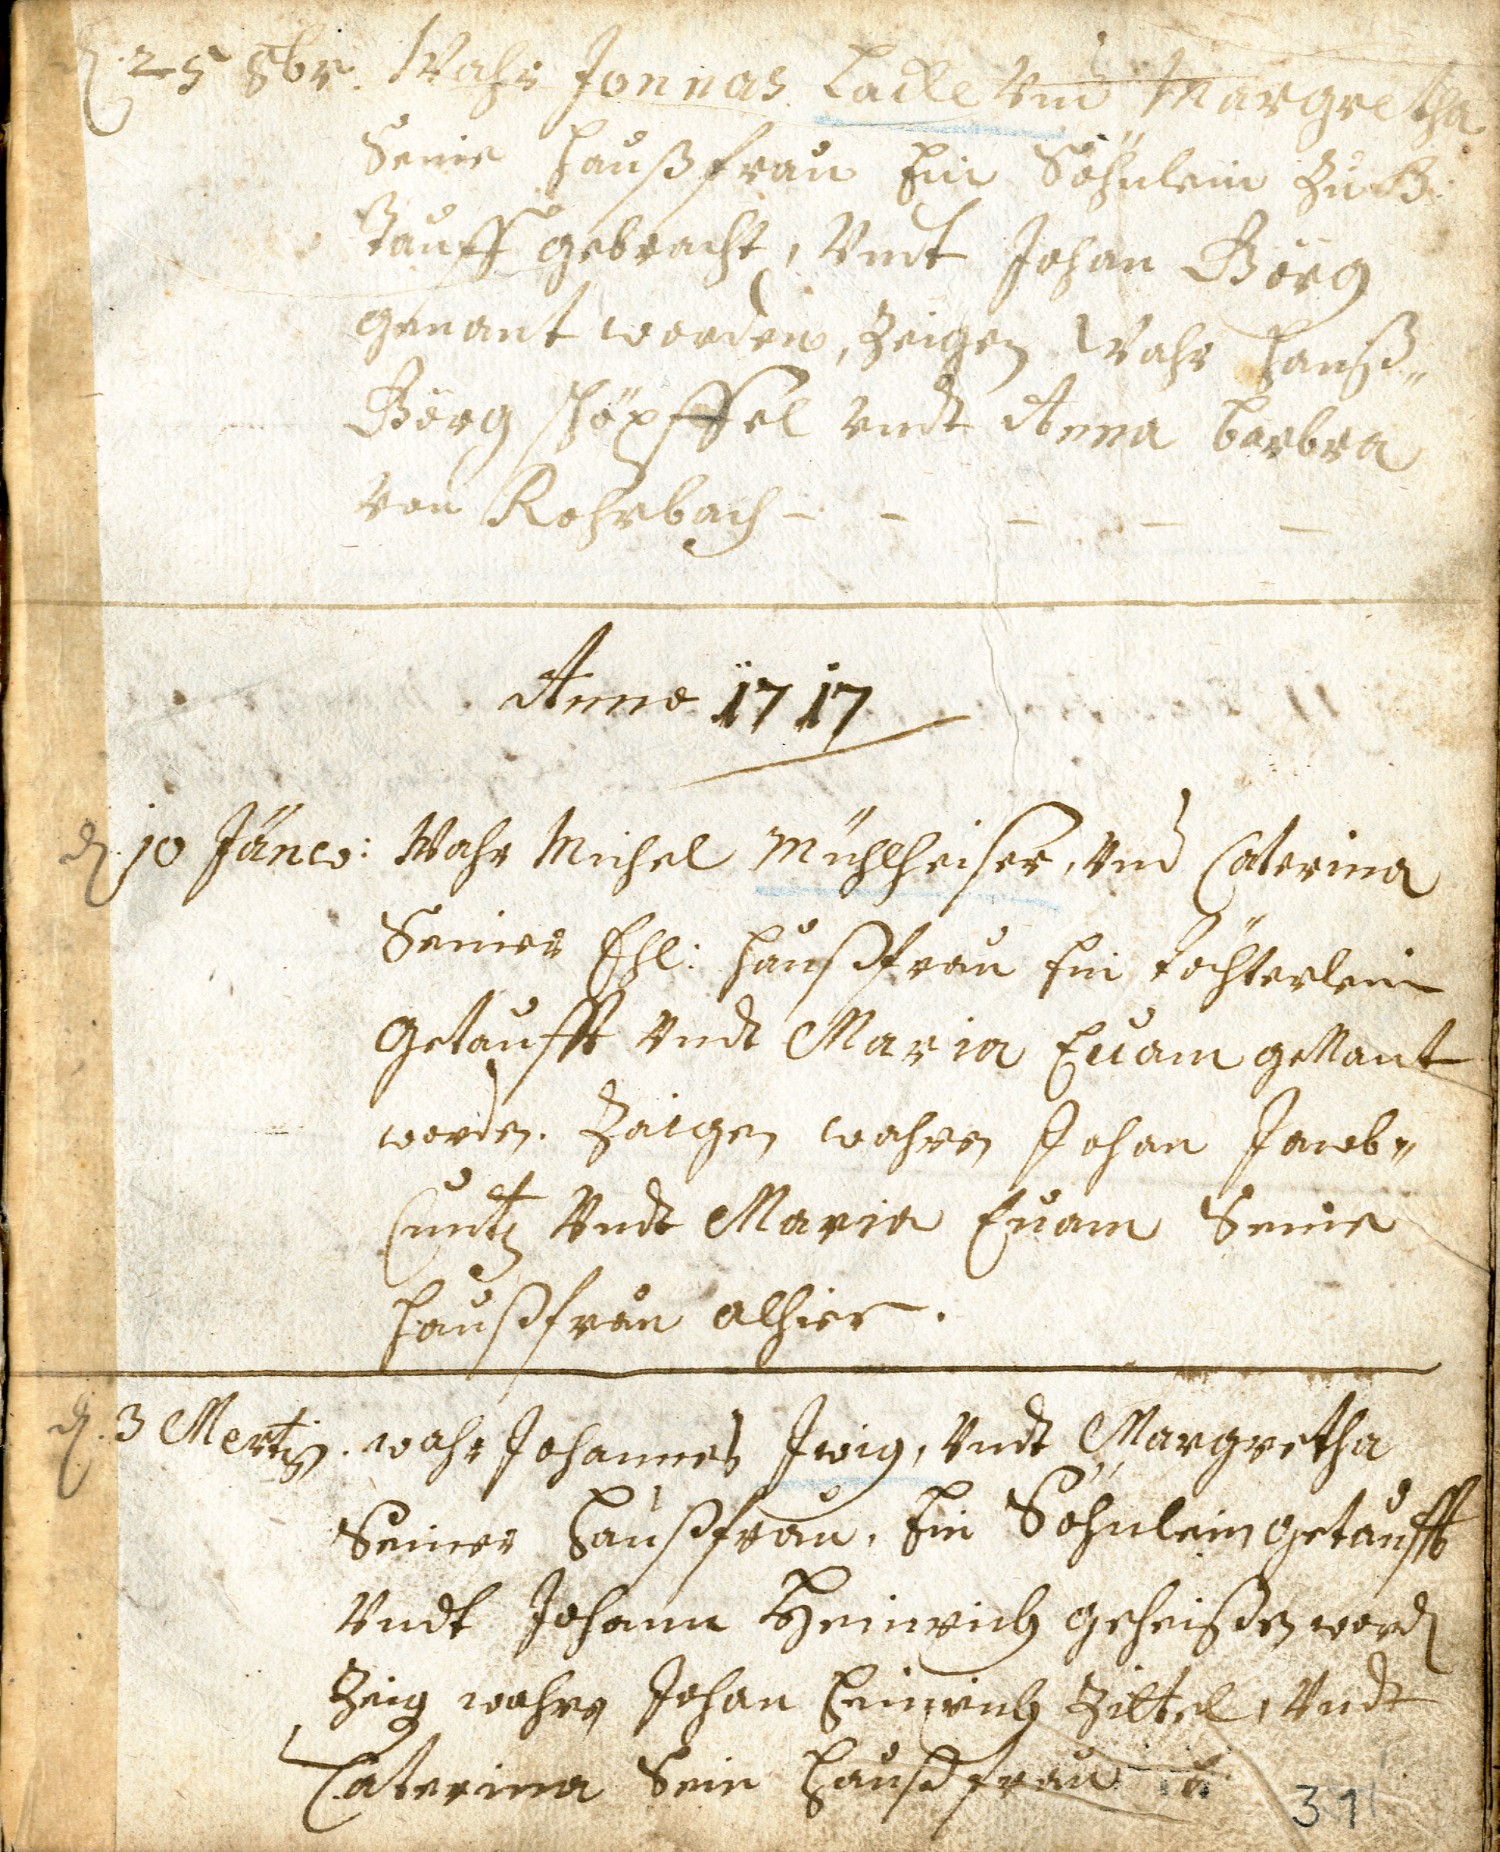 d. 25 8br. Wahr Jonnas Lackl Vnd Margretha
Seine haußfrau Ein Söhnlein zu B:
Tauff gebracht, Vndt Johan Görg
genant worden, Zeigen Wahr hanß=
Görg schöpffel vndt Anna barbra
von Rohrbach - - - - -
Anno 1717
d. 10 Jänew: Wahr Michel Mühlheiser, Vnd Caterina
Seiner Ehl: haußfrau Ein töchterlein
getaufft Vndt Maria Euam genant
worden. Zeigen wahren Johan Jacob=
Cuntz Vndt Maria Euam Seine
haußfrau alhier.
d. 3 Mertz. wahr Johannes Jwig, Vndt Margretha
Seiner haußfrau, Ein Söhnlein getaufft
Vndt Johann Heinrich geheißen word
Zeig wahren Johan Heinrich Zittel, Vndt
Caterina Sein haußfrau
31